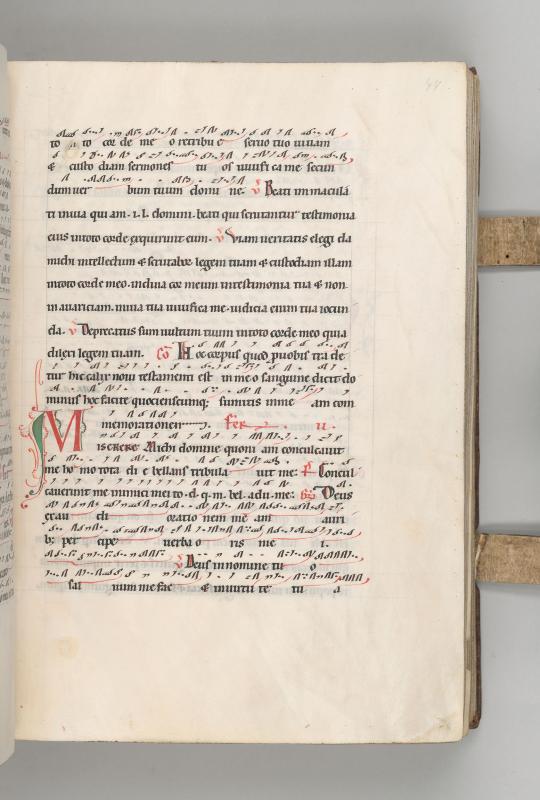 to a to cor de me o retribu e seruo tuo uitam
& custo diam sermones tu os uiuifi ca me secun
dum uer bum tuum domi ne. v Beati inmacula
ti inuia qui am. i. l. domini. beati qui scrutantur testimonia
eius intoto corde exquirunt eum. v Viam ueritatis elegi da
michi intellectum & scrutabor legem tuam & custodiam illam
intoto corde meo. inclina cor meum intestimonia tua & non
in auariciam. in uia tua uiuifica me. iudicia enim tua iocun
da. v Deprecatus sum uultum tuum intoto corde meo quia
dilexi legem tuam. Co Hoc corpus quod pro uobis tra de
tur hic calix noui testamenti est in meo sanguine dicit do
minus hoc facite quocienscumq; sumitis in me am com
memorationem Fer ii.
Miserere Michi domine quoni am conculcauit
me ho mo tota di e bellans tribula uit me. Concul
cauerunt me inimici mei to. d. q. m. bel. adu. me. Deus
exau di oratio nem me am auri
b; per cipe uerba o ris me i.
v Deus in nomine tu o
sal uum me fac & in uirtu te tu a